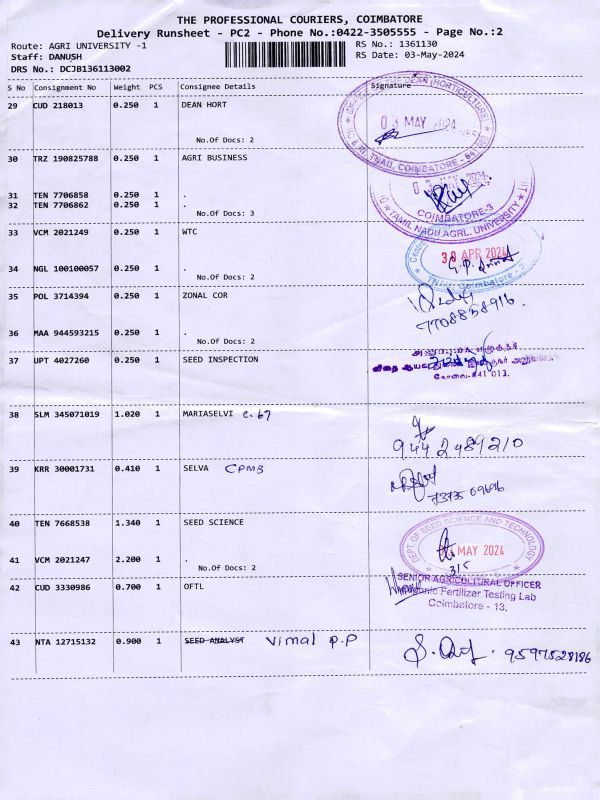 THE PROFESSIONAL COURIERS, COIMBATORE
Delivery Runsheet - PC2 - Phone No.:0422-3505555 - Page No.:2
Route: AGRI UNIVERSITY -1
RS No.: 1361130
Staff: DANUSH
RS Date: 03-May-2024
DRS No.: DCJB136113002
S No Consignment No Weight PCS Consignee Details Signature
29 CUD 218013 0.250 1 DEAN HORT
03 MAY 2024
No.Of Docs: 2
TNAU, COIMBATORE
30 TRZ 190825788 0.250 1 AGRI BUSINESS
31 TEN 7706858 0.250 1 .
32 TEN 7706862 0.250 1 .
No.Of Docs: 3
COIMBATORE-3
TAMIL NADU AGRL. UNIVERSITY
33 VCM 2021249 0.250 1 WTC
30 APR 2024
34 NGL 100100057 0.250 1 .
No.Of Docs: 2
TNAU, Coimbatore - 3
35 POL 3714394 0.250 1 ZONAL COR
7708858916
36 MAA 944593215 0.250 1 .
No.Of Docs: 2
37 UPT 4027260 0.250 1 SEED INSPECTION
கோவை-641 013.
38 SLM 345071019 1.020 1 MARIASELVI C.67
944 2489210
39 KRR 30001731 0.410 1 SELVA CPMB
40 TEN 7668538 1.340 1 SEED SCIENCE
DEPT. OF SEED SCIENCE AND TECHNOLOGY
MAY 2024
3/5
41 VCM 2021247 2.200 1 .
No.Of Docs: 2
42 CUD 3330986 0.700 1 OFTL
SENIOR AGRICULTURAL OFFICER
Organic Fertilizer Testing Lab
Coimbatore - 13.
43 NTA 12715132 0.900 1 SEED ANALYST Vimal P.P
9597528186